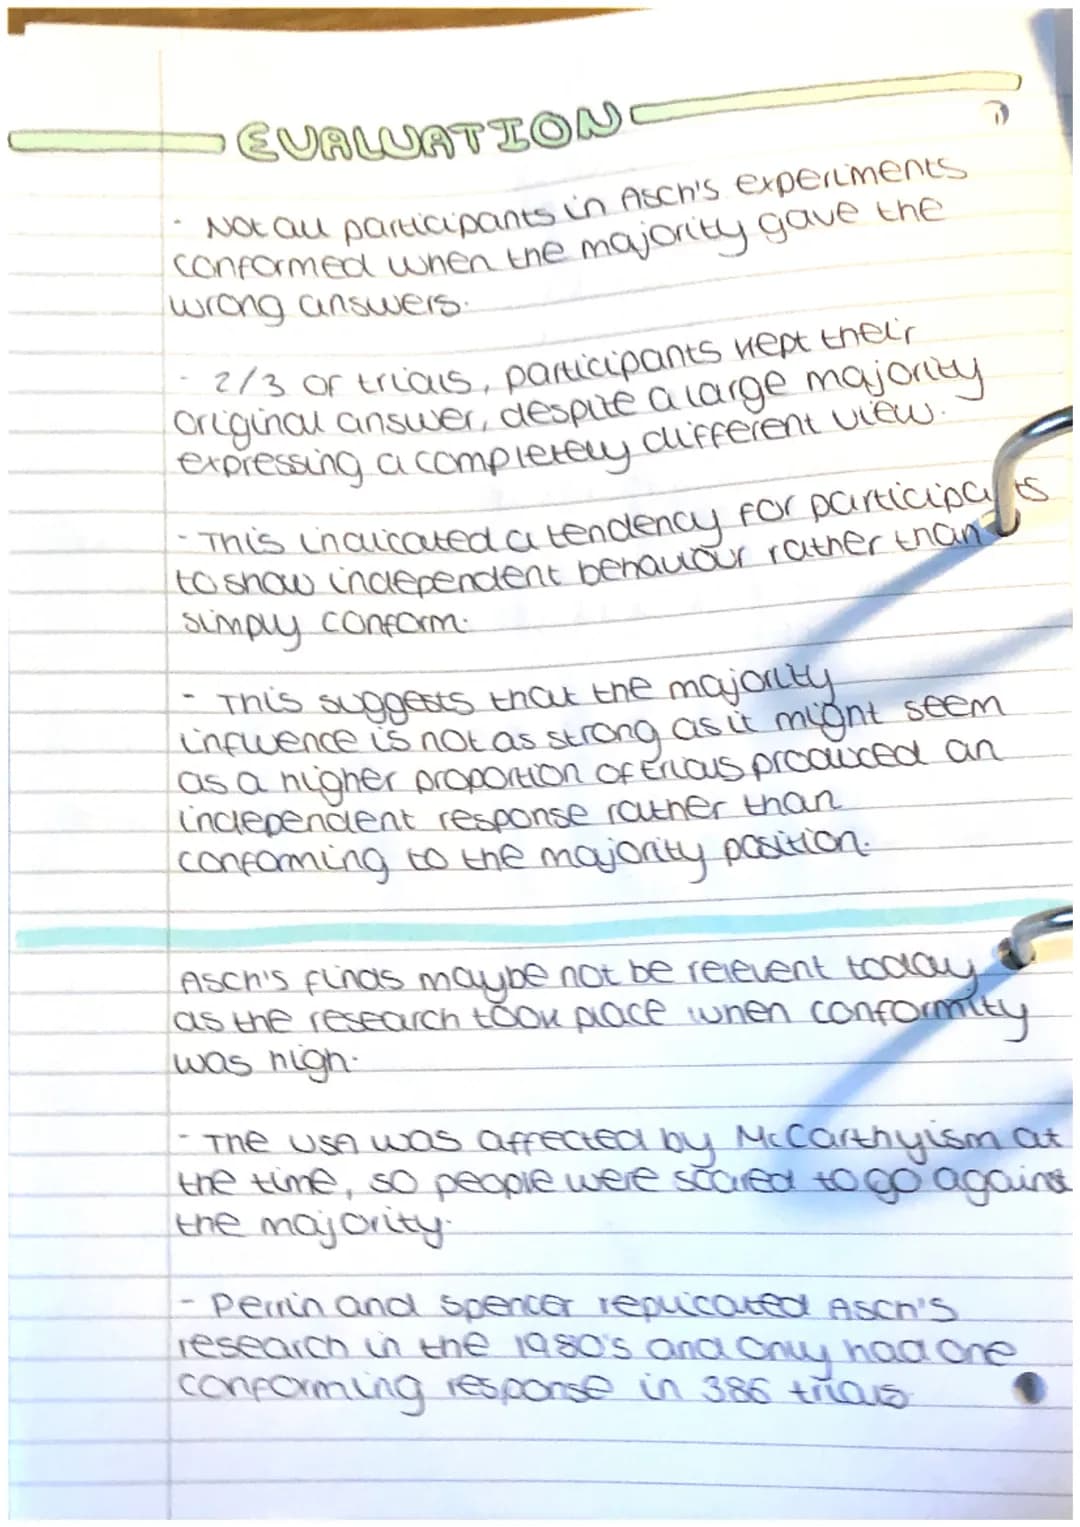 EVALUATION
- Not all participants in Asch's experiments
conformed when the majority gave the
wrong answers.
- 2/3 of trials, participants kept their
original answer, despite a large majority
expressing a completely different view.
- This indicated a tendency for participants
to show independent behaviour rather than
simply conform.
- This suggests that the majority
influence is not as strong as it might seem
as a higher proportion of trials produced an
independent response rather than
conforming to the majority position.
Asch's finds maybe not be relevent today
as the research took place when conformity
was high.
- The USA was affected by McCarthyism at
the time, so people were scared to go against
the majority.
- Perrin and Spencer replicated Asch's
research in the 1980's and only had one
conforming response in 386 trials.